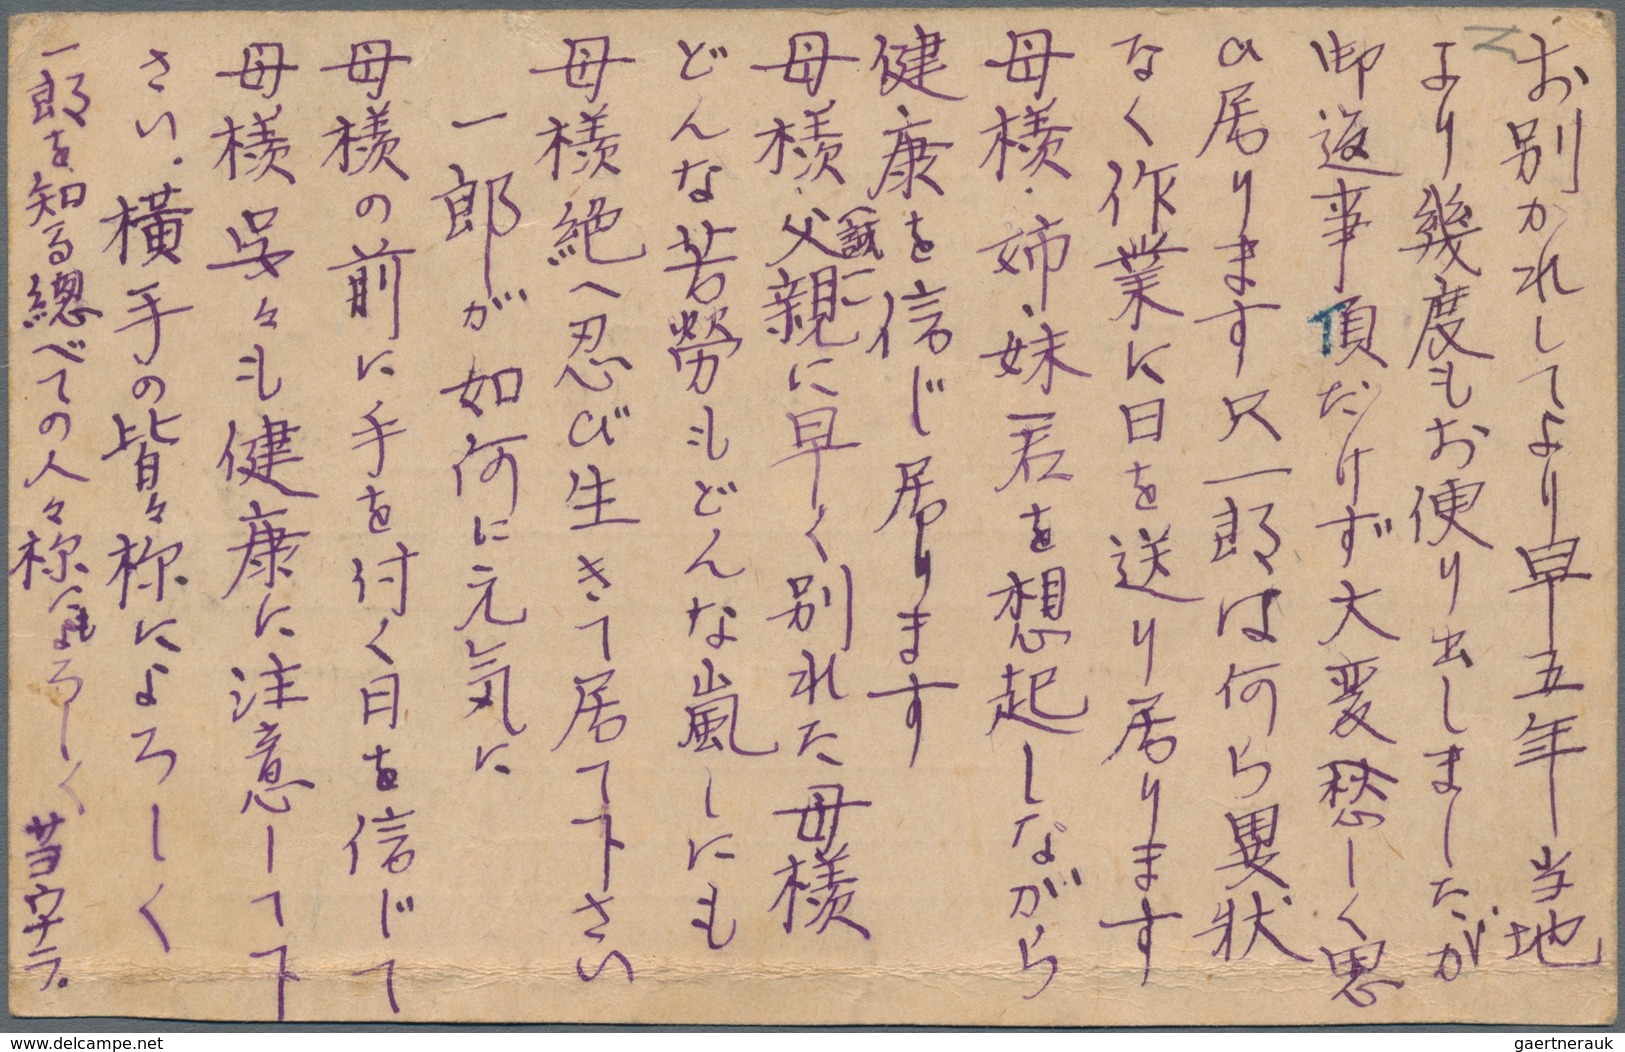 お別かれしてより早五年当地
より幾度もお便り出しましたが
御返事頂だけず大変愁しく思
ひ居ります只一郎は何ら異状
なく作業に日を送り居ります
母様・姉・妹君を想起しながら
健康を信じ居ります
母様・父親に早く別れた母様
どんな苦勞もどんな嵐しにも
母様絶へ忍び生きて居て下さい
一郎が如何に元気に
母様の前に手を付く日を信じて
母様呉々も健康に注意して下
さい.横手の皆々様によろしく
一郎を知る總べての人々様へもよろしく
www.delcampe.net
gaertnerauk